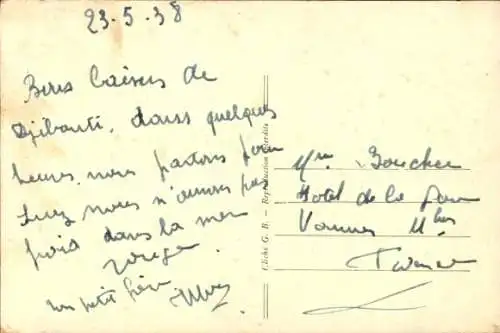 23.5.38
Bons baisers de
Djibouti, dans quelques
heures nous partons pour
Suez nous n'aurons pas
froid dans la mer
rouge.
ton petit frère
Cliché G. B. - Reproduction interdite
Mme Boucher
Hotel de la
Vannes Mhan
France